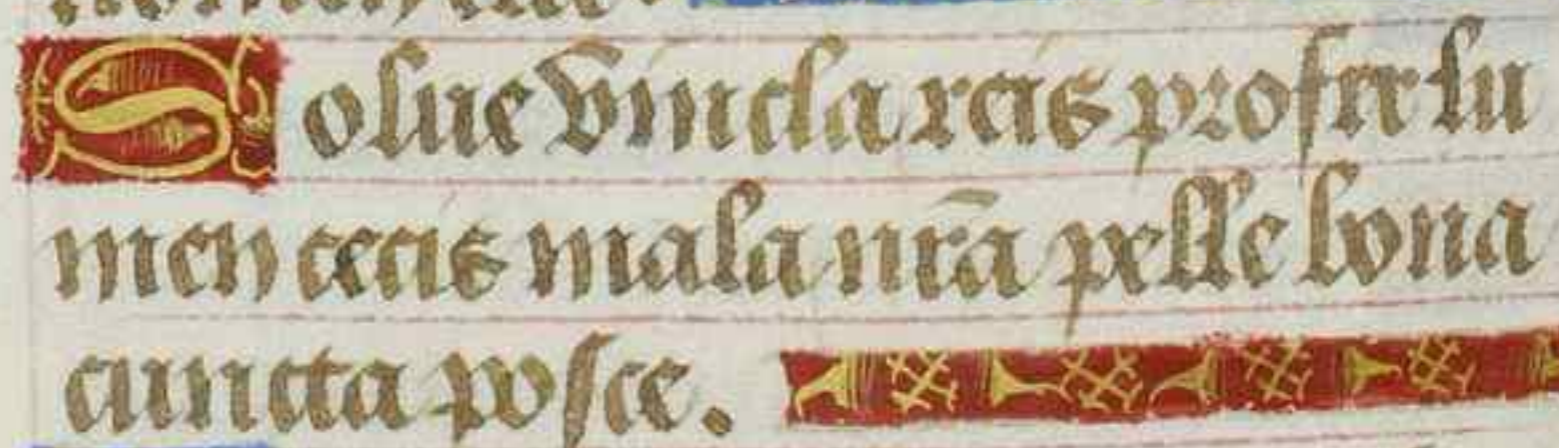 Solue vincla reis profer lu
men cecis mala nr̄a pelle bona
cuncta posce.